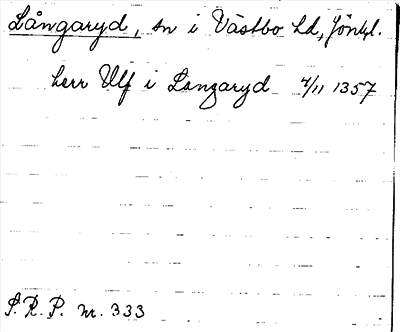 Långaryd, sn i Västbo hd, Jönk.l.
herr Ulf i Langaryd 4/11 1357
S.R.P. nr. 333